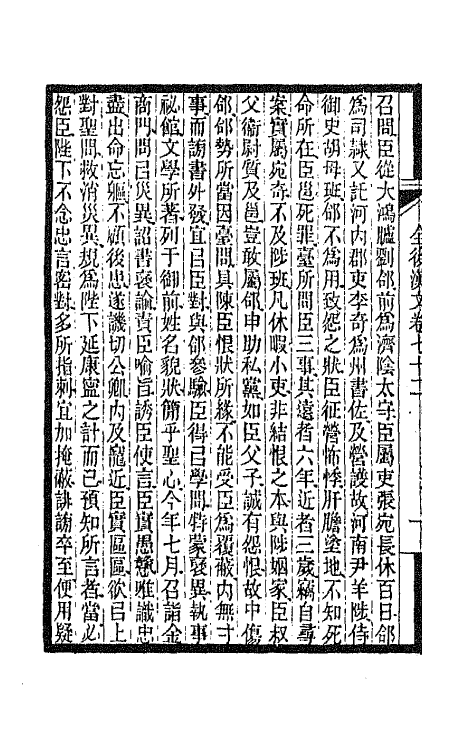 全後漢文卷七十二
召問臣從大鴻臚劉郃前爲濟陰太守臣屬吏張宛長休百日郃
爲司隸又託河內郡吏李奇爲州書佐及營護故河南尹羊陟侍
御史胡母班郃不爲用致怨之狀臣征營怖悸肝膽塗地不知死
命所在臣邕死罪臺所問臣三事其遠者六年近者三歲竊自尋
案實屬宛奇不及陟班凡休暇小吏非結恨之本與陟姻家臣叔
父衞尉質及邕豈敢屬郃申助私黨如臣父子誠有怨恨故中傷
郃郃勢所當因臺問具陳臣恨狀所緣不能受臣爲覆蔽內無寸
事而謗書外發宜㠯臣對與郃參驗臣得㠯學問特蒙襃異執事
祕館文學所著列于御前姓名貌狀簡乎聖心今年七月召詣金
商門問㠯災異詔書襃諭責臣喻旨誘臣使言臣實愚戇唯識忠
盡出命忘軀不顧後患遂譏切公卿內及寵近臣實區區欲㠯上
對聖問救消災異規爲陛下延康寧之計而已預知所言者當必
怨臣陛下不念忠言密對多所指刺宜加掩蔽誹謗卒至便用疑